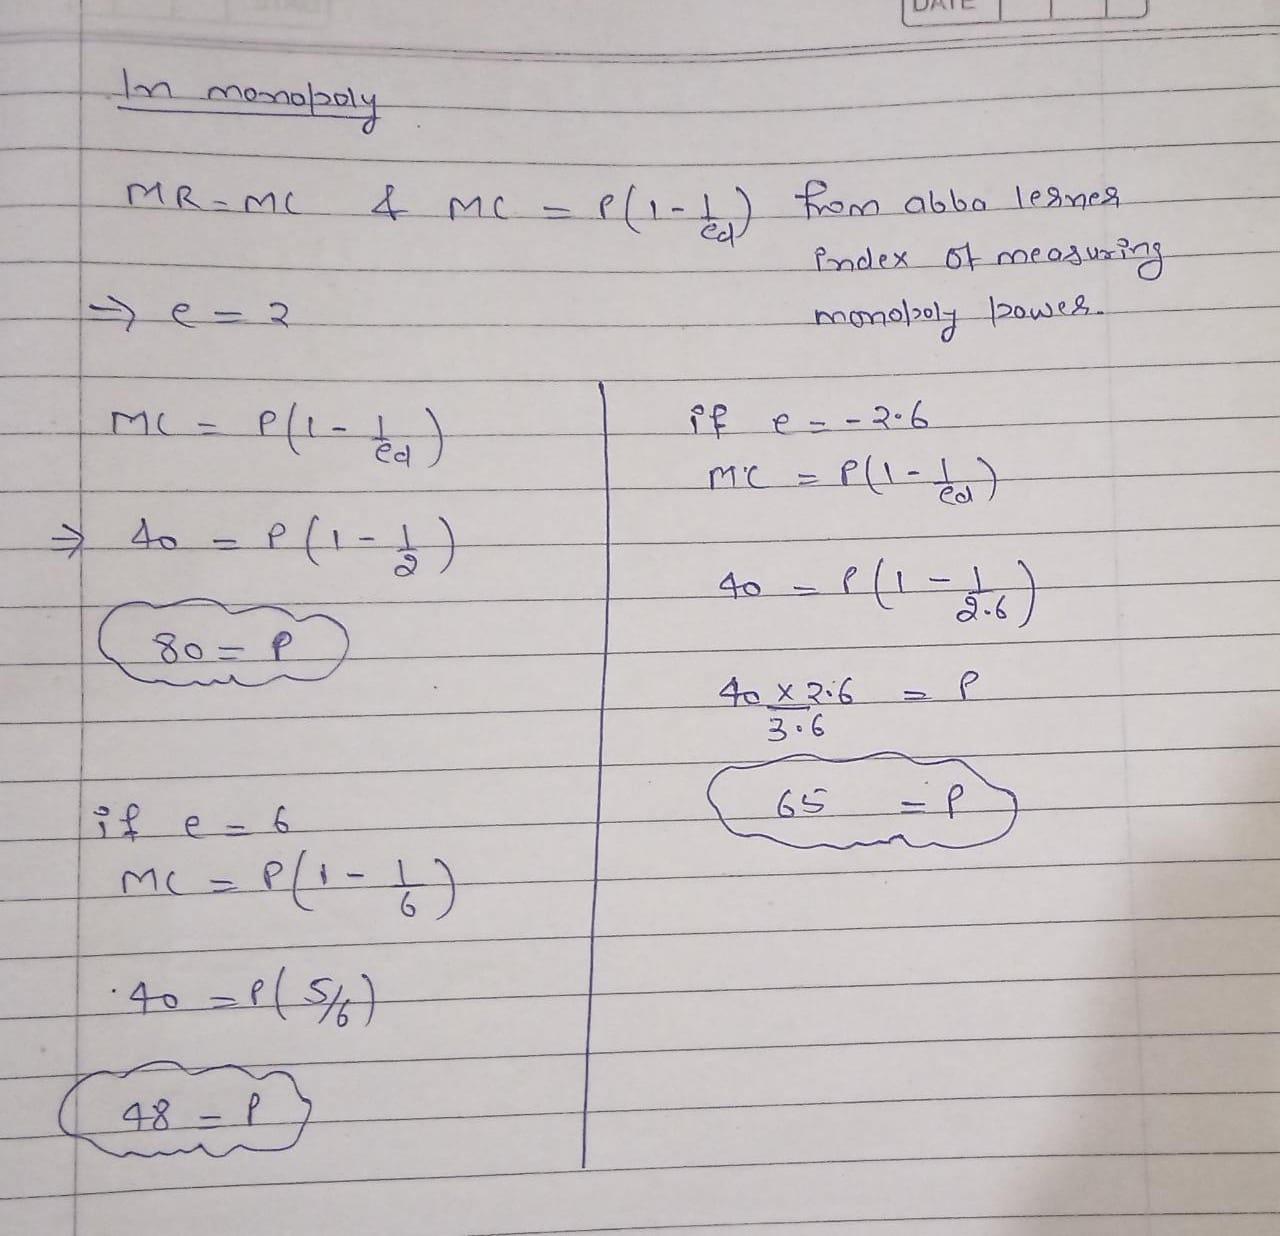 DATE
In monopoly
MR = MC & MC = P(1 - 1/ed) from abba lerner
index of measuring
monopoly power.
⇒ e = 2
MC = P(1 - 1/ed)
⇒ 40 = P(1 - 1/2)
80 = P
if e = 6
MC = P(1 - 1/6)
40 = P(5/6)
48 = P
if e = -2.6
MC = P(1 - 1/ed)
40 = P(1 - 1/2.6)
40 x 2.6 / 3.6 = P
65 = P